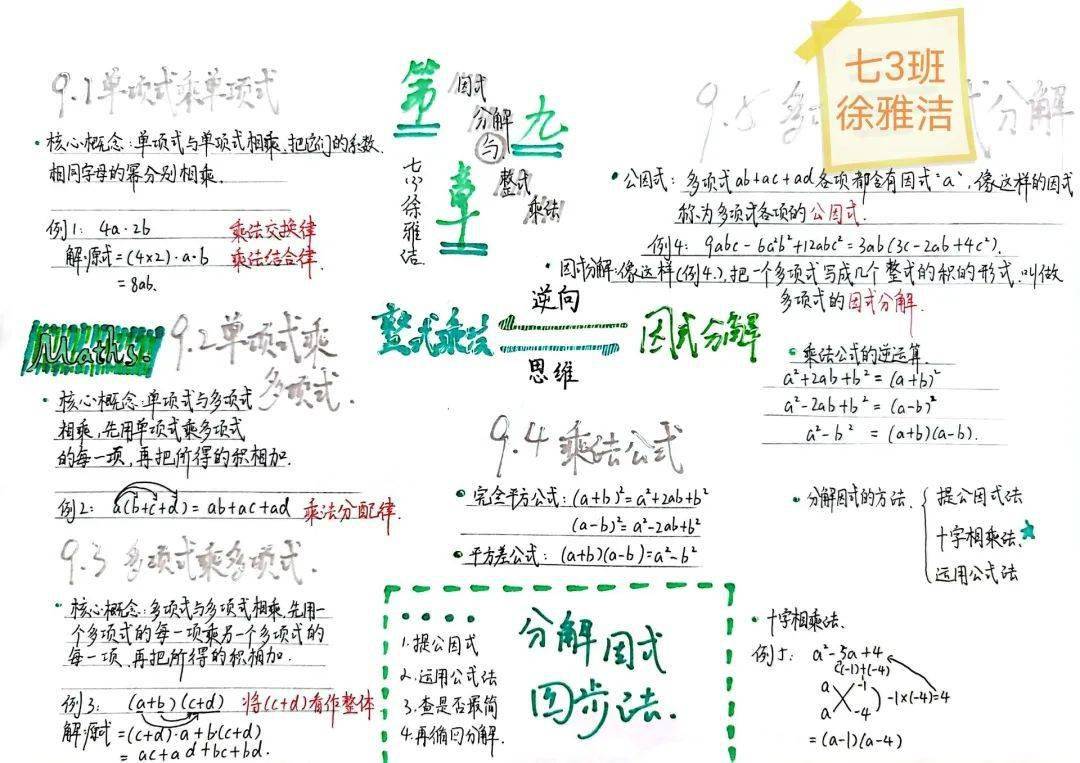 七3班
徐雅洁
第九章
因式
分解
与
整式
乘法
七(3)徐雅洁
9.1单项式乘单项式
·核心概念:单项式与单项式相乘,把它们的系数、
相同字母的幂分别相乘.
例1: 4a·2b 乘法交换律
解:原式=(4×2)·a·b 乘法结合律
=8ab.
Maths.
9.2单项式乘
多项式.
·核心概念:单项式与多项式
相乘,先用单项式乘多项式
的每一项,再把所得的积相加.
例2: a(b+c+d)=ab+ac+ad 乘法分配律.
9.3 多项式乘多项式.
·核心概念:多项式与多项式相乘,先用一
个多项式的每一项乘另一个多项式的
每一项,再把所得的积相加.
例3: (a+b)(c+d) 将(c+d)看作整体
解:原式=(c+d)·a+b(c+d)
=ac+ad+bc+bd.
整式乘法
逆向
思维
因式分解
9.4 乘法公式
·完全平方公式:(a+b)²=a²+2ab+b²
(a-b)²=a²-2ab+b²
·平方差公式:(a+b)(a-b)=a²-b²
1.提公因式
2.运用公式法
3.查是否最简
4.再循回分解.
分解因式
四步法.
9.5 多 式分解
·公因式:多项式ab+ac+ad各项都含有因式"a",像这样的因式
称为多项式各项的公因式.
例4: 9abc-6a²b²+12abc²=3ab(3c-2ab+4c²).
·因式分解:像这样(例4.),把一个多项式写成几个整式的积的形式,叫做
多项式的因式分解.
·乘法公式的逆运算.
a²+2ab+b²=(a+b)²
a²-2ab+b²=(a-b)²
a²-b²=(a+b)(a-b).
·分解因式的方法.
提公因式法
十字相乘法.
运用公式法
·十字相乘法.
例5: a²-5a+4
(-1)+(-4)
a -1
a -4
-1×(-4)=4
=(a-1)(a-4)